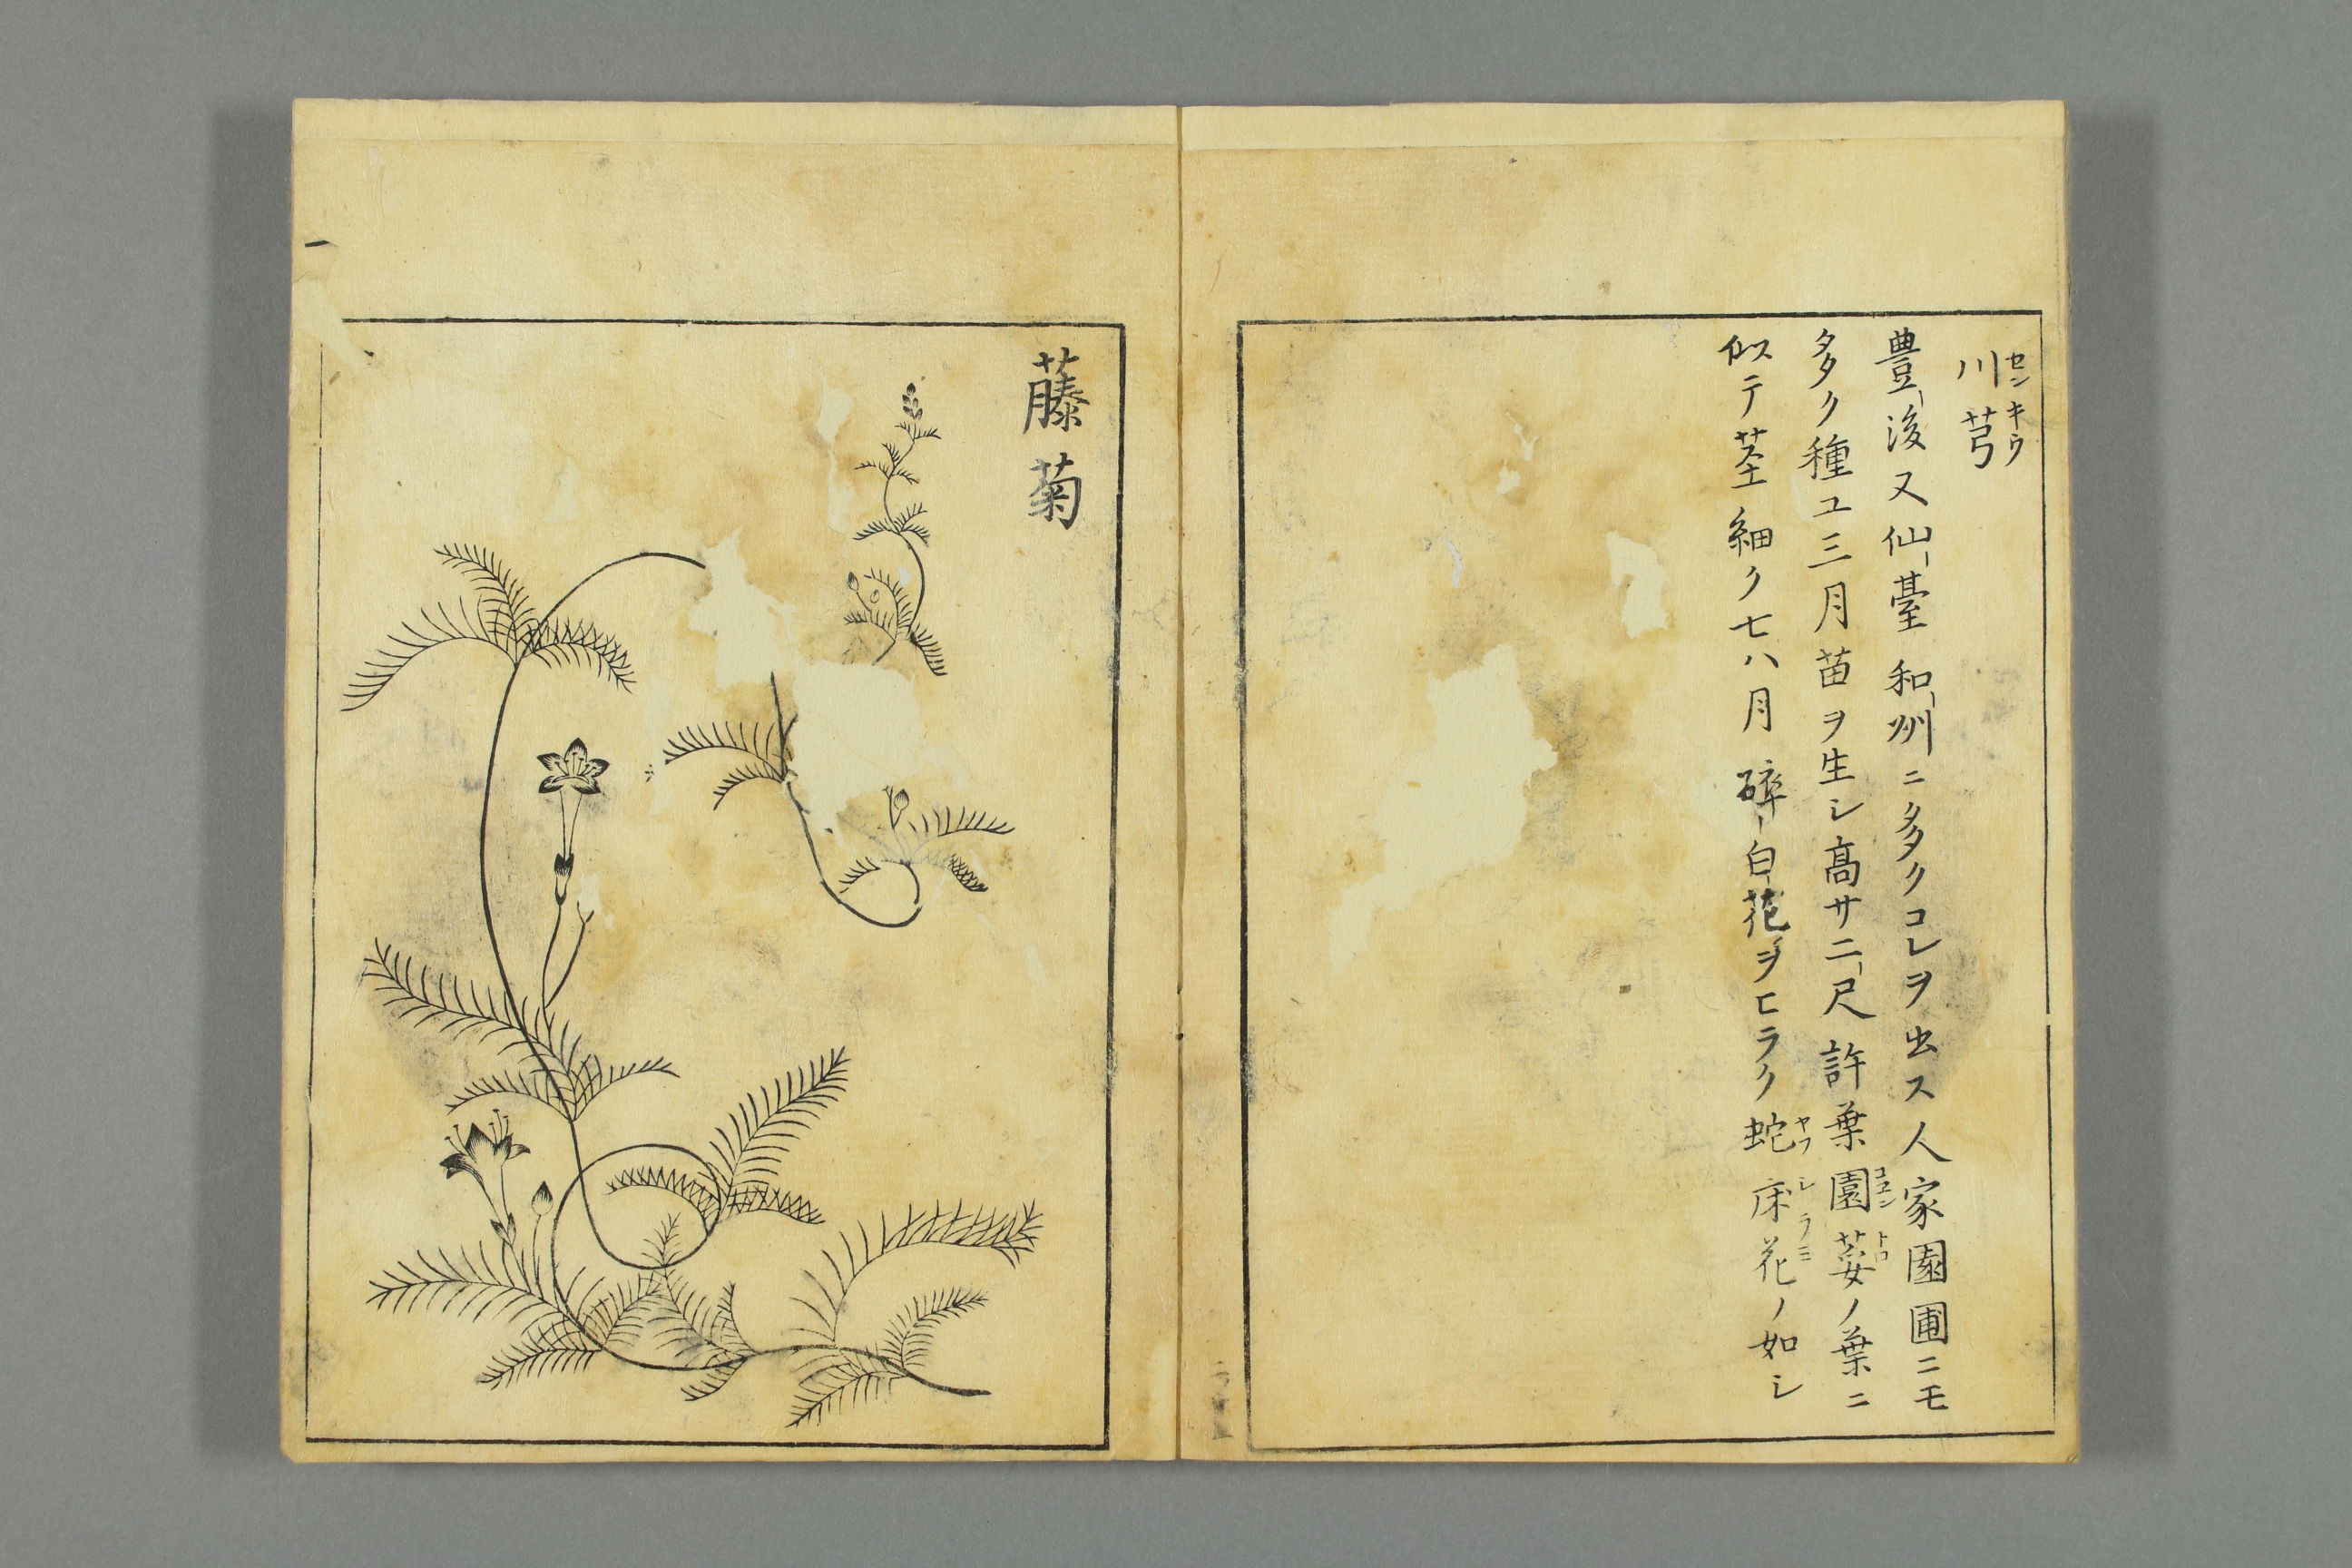 川芎
センキウ
豊後又仙臺和州ニ多クコレヲ出ス人家園圃ニモ
多ク種ユ三月苗ヲ生シ高サ二尺許葉園荽ノ葉ニ
コエントロ
似テ茎細ク七八月碎白花ヲヒラク蛇床花ノ如シ
ヤフシラミ
藤菊